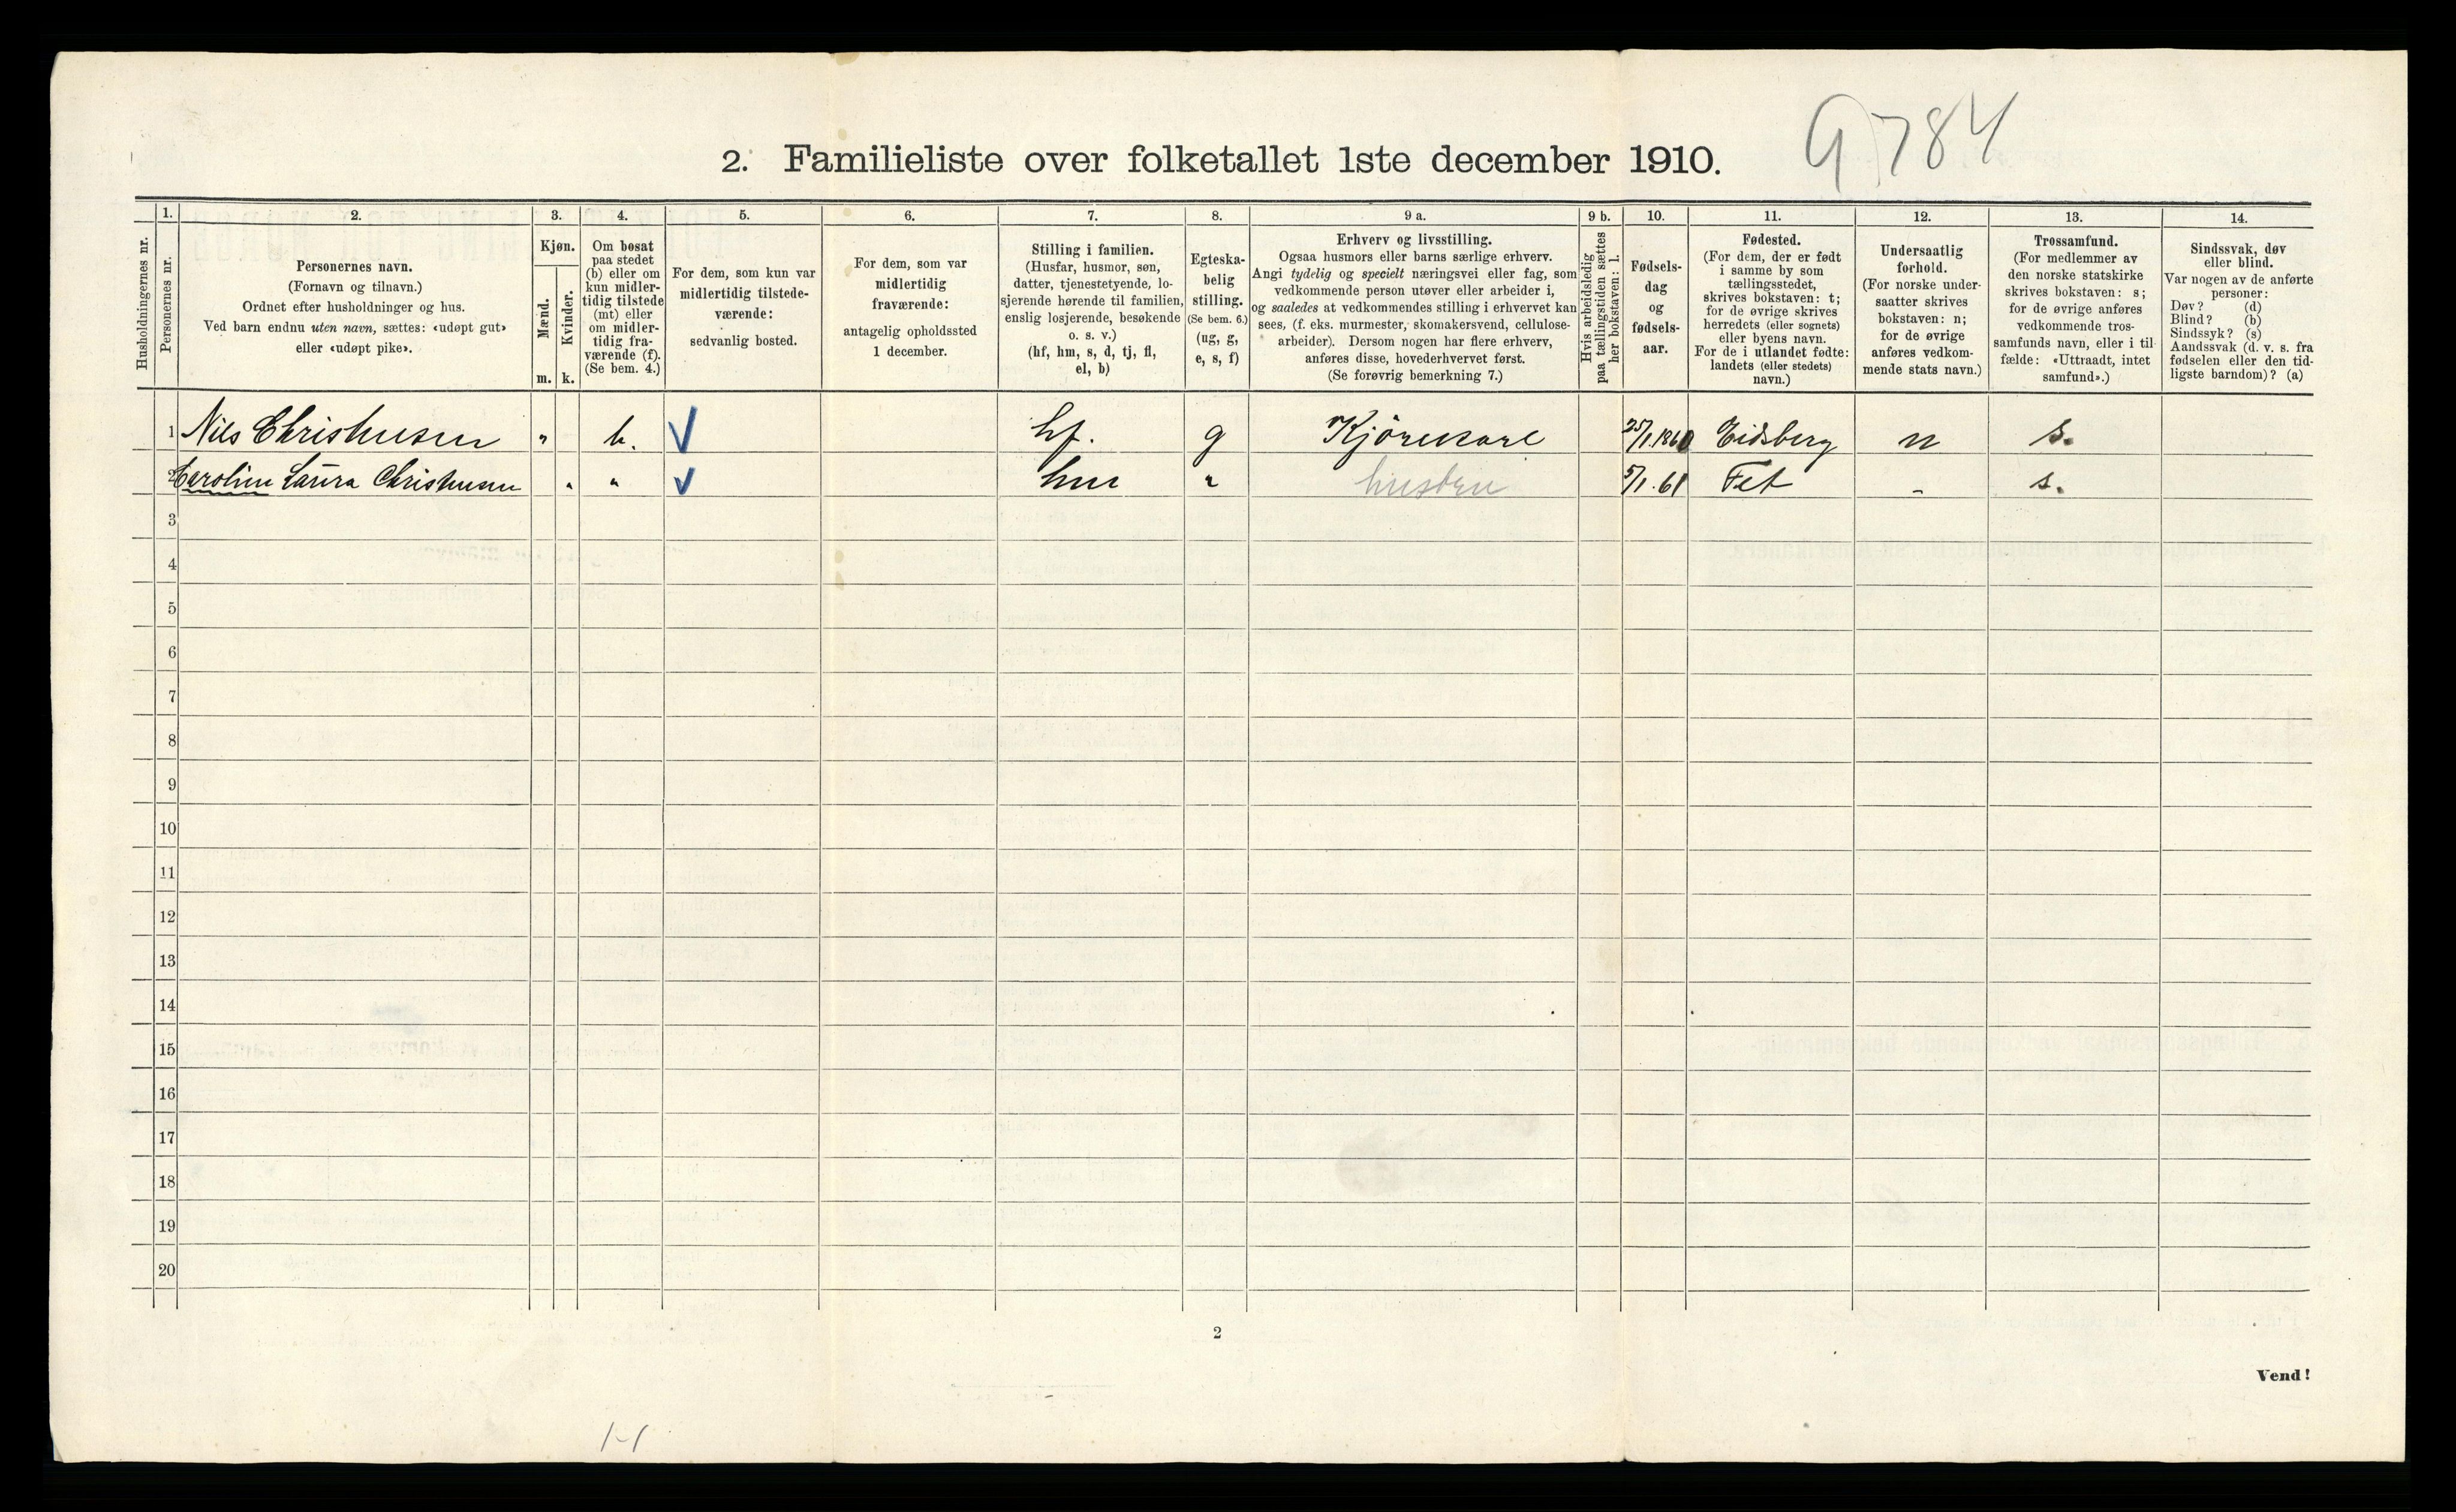 9784
2. Familieliste over folketallet 1ste december 1910.
Husholdningernes nr.
1. Personernes nr.
2.
Personernes navn.
(Fornavn og tilnavn.)
Ordnet efter husholdninger og hus.
Ved barn endnu uten navn, sættes: «udøpt gut»
eller «udøpt pike».
3.
Kjøn.
Mænd. Kvinder.
m. k.
4.
Om bosat
paa stedet
(b) eller om
kun midler-
tidig tilstede
(mt) eller
om midler-
tidig fra-
værende (f).
(Se bem. 4.)
5.
For dem, som kun var
midlertidig tilstede-
værende:
sedvanlig bosted.
6.
For dem, som var
midlertidig
fraværende:
antagelig opholdssted
1 december.
7.
Stilling i familien.
(Husfar, husmor, søn,
datter, tjenestetyende, lo-
sjerende hørende til familien,
enslig losjerende, besøkende
o. s. v.)
(hf, hm, s, d, tj, fl,
el, b)
8.
Egteska-
belig
stilling.
(Se bem. 6.)
(ug, g,
e, s, f)
9 a.
Erhverv og livsstilling.
Ogsaa husmors eller barns særlige erhverv.
Angi tydelig og specielt næringsvei eller fag, som
vedkommende person utøver eller arbeider i,
og saaledes at vedkommendes stilling i erhvervet kan
sees, (f. eks. murmester, skomakersvend, cellulose-
arbeider). Dersom nogen har flere erhverv,
anføres disse, hovederhvervet først.
(Se forøvrig bemerkning 7.)
9 b.
Hvis arbeidsledig
paa tællingstiden sættes
her bokstaven: l.
10.
Fødsels-
dag
og
fødsels-
aar.
11.
Fødested.
(For dem, der er født
i samme by som
tællingsstedet,
skrives bokstaven: t;
for de øvrige skrives
herredets (eller sognets)
eller byens navn.
For de i utlandet fødte:
landets (eller stedets)
navn.)
12.
Undersaatlig
forhold.
(For norske under-
saatter skrives
bokstaven: n;
for de øvrige
anføres vedkom-
mende stats navn.)
13.
Trossamfund.
(For medlemmer av
den norske statskirke
skrives bokstaven: s;
for de øvrige anføres
vedkommende tros-
samfunds navn, eller i til-
fælde: «Uttraadt, intet
samfund».)
14.
Sindssvak, døv
eller blind.
Var nogen av de anførte
personer:
Døv? (d)
Blind? (b)
Sindssyk? (s)
Aandssvak (d. v. s. fra
fødselen eller den tid-
ligste barndom)? (a)
1 Nils Christensen " b. hf. g Kjörekarl 25/1.1860 Eidsberg n s.
2 Caroline Laura Christensen " " hm " hustru 5/1.61 Fet - s.
3
4
5
6
7
8
9
10
11
12
13
14
15
16
17
18
19
20
2
Vend!
1-1